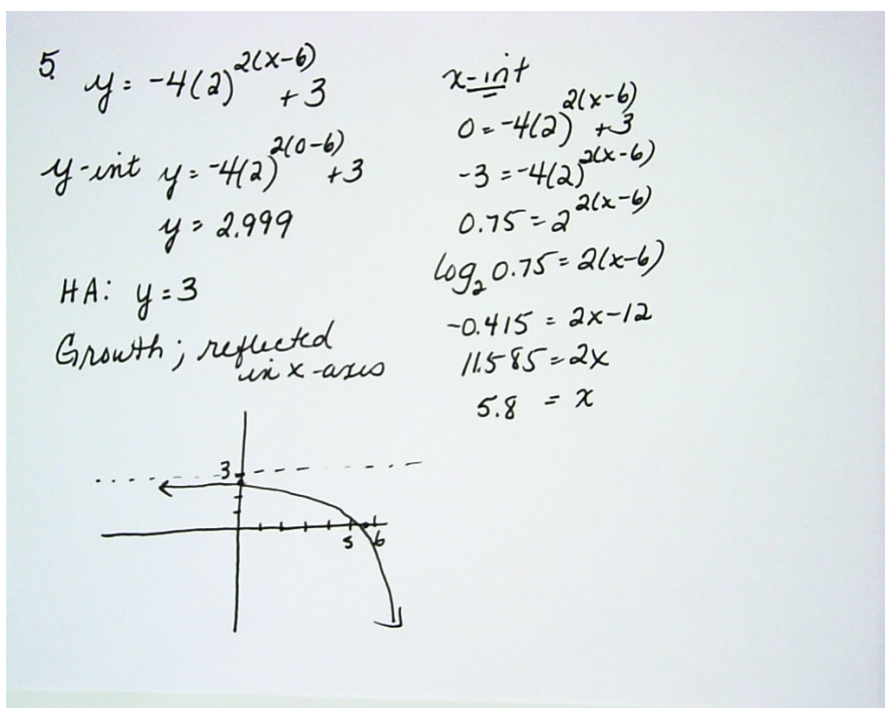 5. y = -4(2)^{2(x-6)} + 3
y-int y = -4(2)^{2(0-6)} + 3
y = 2.999
HA: y = 3
Growth; reflected
in x-axis
x-int
0 = -4(2)^{2(x-6)} + 3
-3 = -4(2)^{2(x-6)}
0.75 = 2^{2(x-6)}
log₂ 0.75 = 2(x-6)
-0.415 = 2x-12
11.585 = 2x
5.8 = x
3
5 6